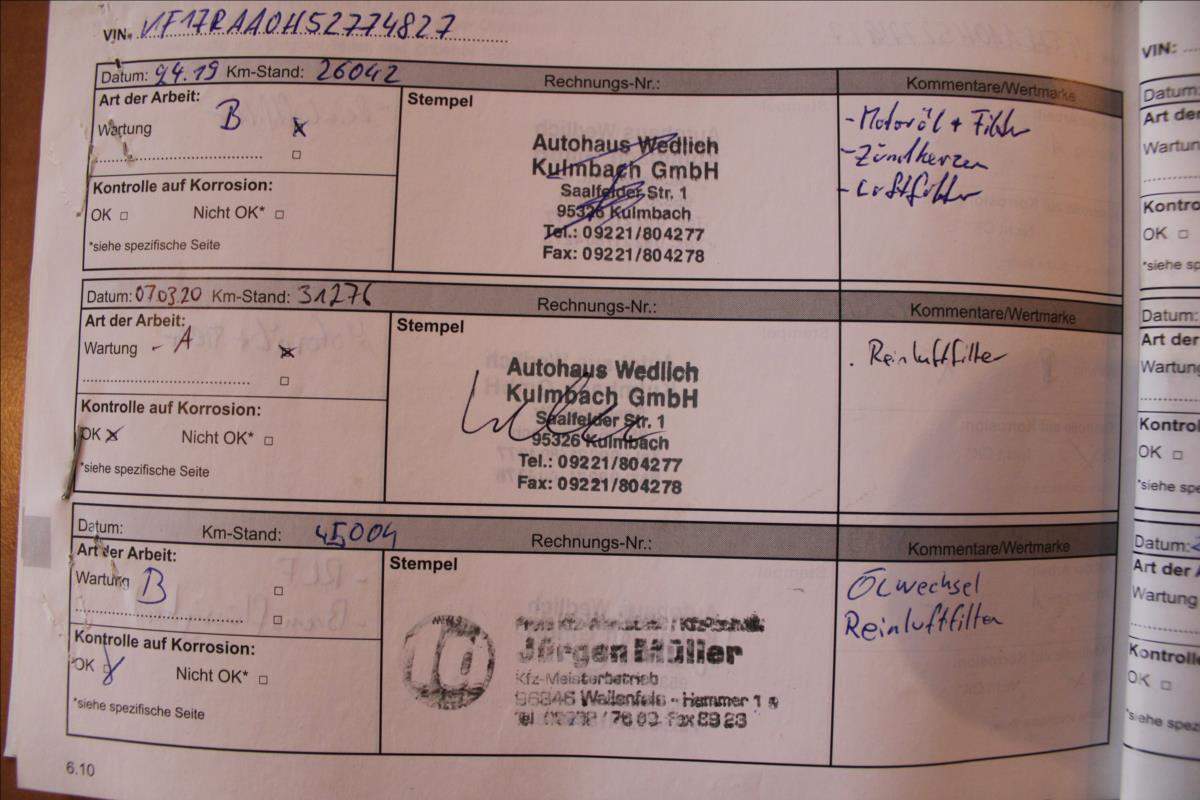 VIN: VF17RAA0H52774827
Datum: 9.4.19 Km-Stand: 26042 Rechnungs-Nr.: Kommentare/Wertmarke
Art der Arbeit:
Wartung B
Kontrolle auf Korrosion:
OK Nicht OK*
*siehe spezifische Seite
Stempel
Autohaus Wedlich
Kulmbach GmbH
Saalfelder Str. 1
95326 Kulmbach
Tel.: 09221/804277
Fax: 09221/804278
- Motoröl + Filter
- Zündkerzen
- Luftfilter
Datum: 07.03.20 Km-Stand: 31276 Rechnungs-Nr.: Kommentare/Wertmarke
Art der Arbeit:
Wartung - A
Kontrolle auf Korrosion:
OK Nicht OK*
*siehe spezifische Seite
Stempel
Autohaus Wedlich
Kulmbach GmbH
Saalfelder Str. 1
95326 Kulmbach
Tel.: 09221/804277
Fax: 09221/804278
. Reinluftfilter
Datum: Km-Stand: 45004 Rechnungs-Nr.: Kommentare/Wertmarke
Art der Arbeit:
Wartung B
Kontrolle auf Korrosion:
OK Nicht OK*
*siehe spezifische Seite
Stempel
Jürgen Müller
Kfz-Meisterbetrieb
96346 Wallenfels - Hammer 1
Ölwechsel
Reinluftfilter
6.10
VIN:
Datum:
Art der
Wartun
Kontro
OK
*siehe sp
Datum:
Art der
Wartung
Kontrol
OK
*siehe spe
Datum:
Art der
Wartung
Kontrolle
OK
*siehe spe